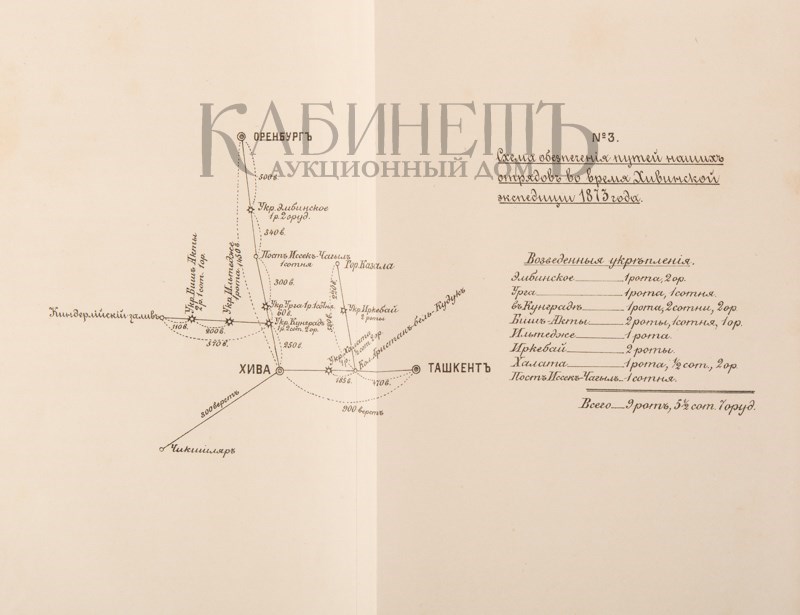 КАБИНЕТЪ
АУКЦИОННЫЙ ДОМ
№3.
Схема обезпеченія путей нашихъ
отрядовъ во время Хивинской
экспедиціи 1873 года.
ОРЕНБУРГЪ
500 в.
Укр. Эмбинское
1 р. 2 оруд.
340 в.
Постъ Иссекъ-Чагылъ
1 сотня
Гор. Казала
300 в.
1450 в.
Укр. Бишъ Акты
2 р. 1 сот. 1 ор.
Укр. Ильтедже
1 рота
Укр. Урга 1 р. 1 сотня
60 в.
Укр. Иркебай
2 роты
Киндерлійскій заливъ
110 в.
200 в.
570 в.
Укр. Кунградъ
1 р. 2 сот. 2 ор.
250 в.
Укр. Халата
Кол. Аристанъ-бель-Кудукъ
ХИВА
ТАШКЕНТЪ
185 в.
470 в.
900 верстъ
300 верстъ
Чикишляръ
Возведенныя укрѣпленія.
Эмбинское 1 рота, 2 ор.
Урга 1 рота, 1 сотня.
въ Кунградѣ 1 рота, 2 сотни, 2 ор.
Бишъ-Акты 2 роты, 1 сотня, 1 ор.
Ильтедже 1 рота.
Иркебай 2 роты.
Халата 1 рота, ½ сот., 2 ор.
Постъ Иссекъ-Чагылъ 1 сотня.
Всего 9 ротъ, 5½ сот. 7 оруд.